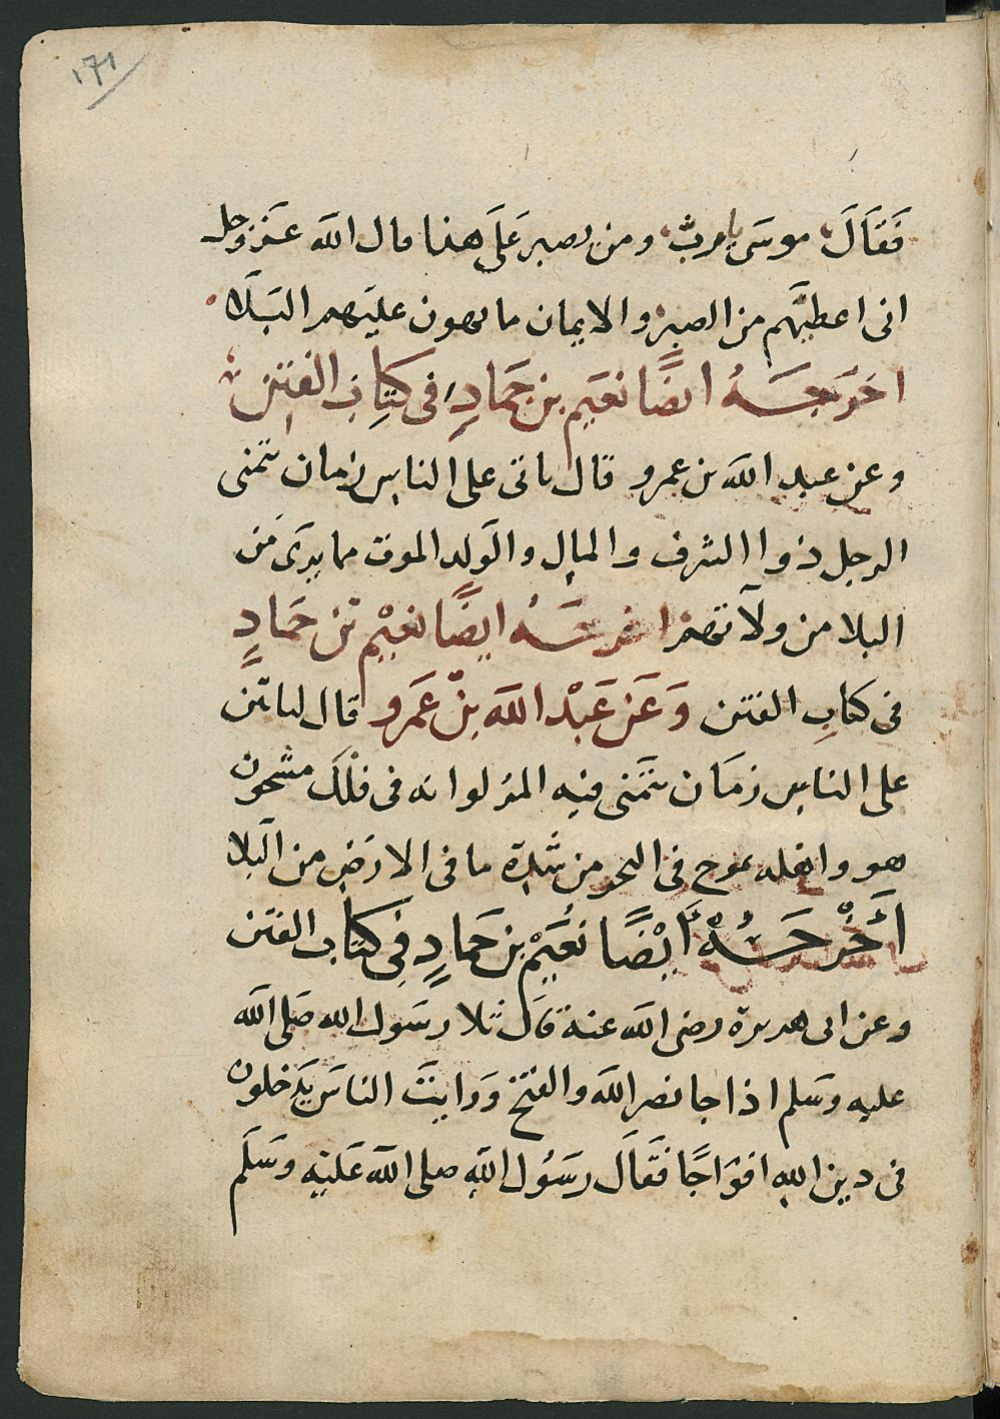 ١٧١
فَقَاَلَ موسَى يا رب ومن يصبر عَلَى هذا قال الله عَزوجل
انى اعطيهم من الصبر والايمان ما يهون عليهم البَلَا
اخرَجَهُ ايضًا نعَيم بن حَمادٍ فى كتِاب الفتِن
وعن عبد الله بن عمرو قال ياتى على الناس زمان يتمنى
الرجل ذوا الشرف والمال والَولد الموت مما يرَى مَن
البلا من ولاتهم اخرجَهُ ايضًا نعَيْم بن حَمادٍ
فى كتابِ الفتن وَعَن عَبْد الله بنْ عَمَرو قال لياتين
على الناس زمَان يتمَنى فيه المرء لو انه فى فلْكَ مشحون
هو واهله يموج فى البحر من شدة ما فى الارَض من البَلا
أَخْرجَهُ أيْضًا نُعَيْم بن حَمادٍ فِى كتاب الفتن
وعن ابى هريرة رضى الله عنه قاَل تلا رسَول الله صَلى الله
عليه وسَلم اذا جا نصر الله والفتح وَرايتَ الناسَ يَدخلون
فى دين الله افوَاجًا فقَالَ رسَوُل اللهِ صلى الله عَليَهِ وسَلَم